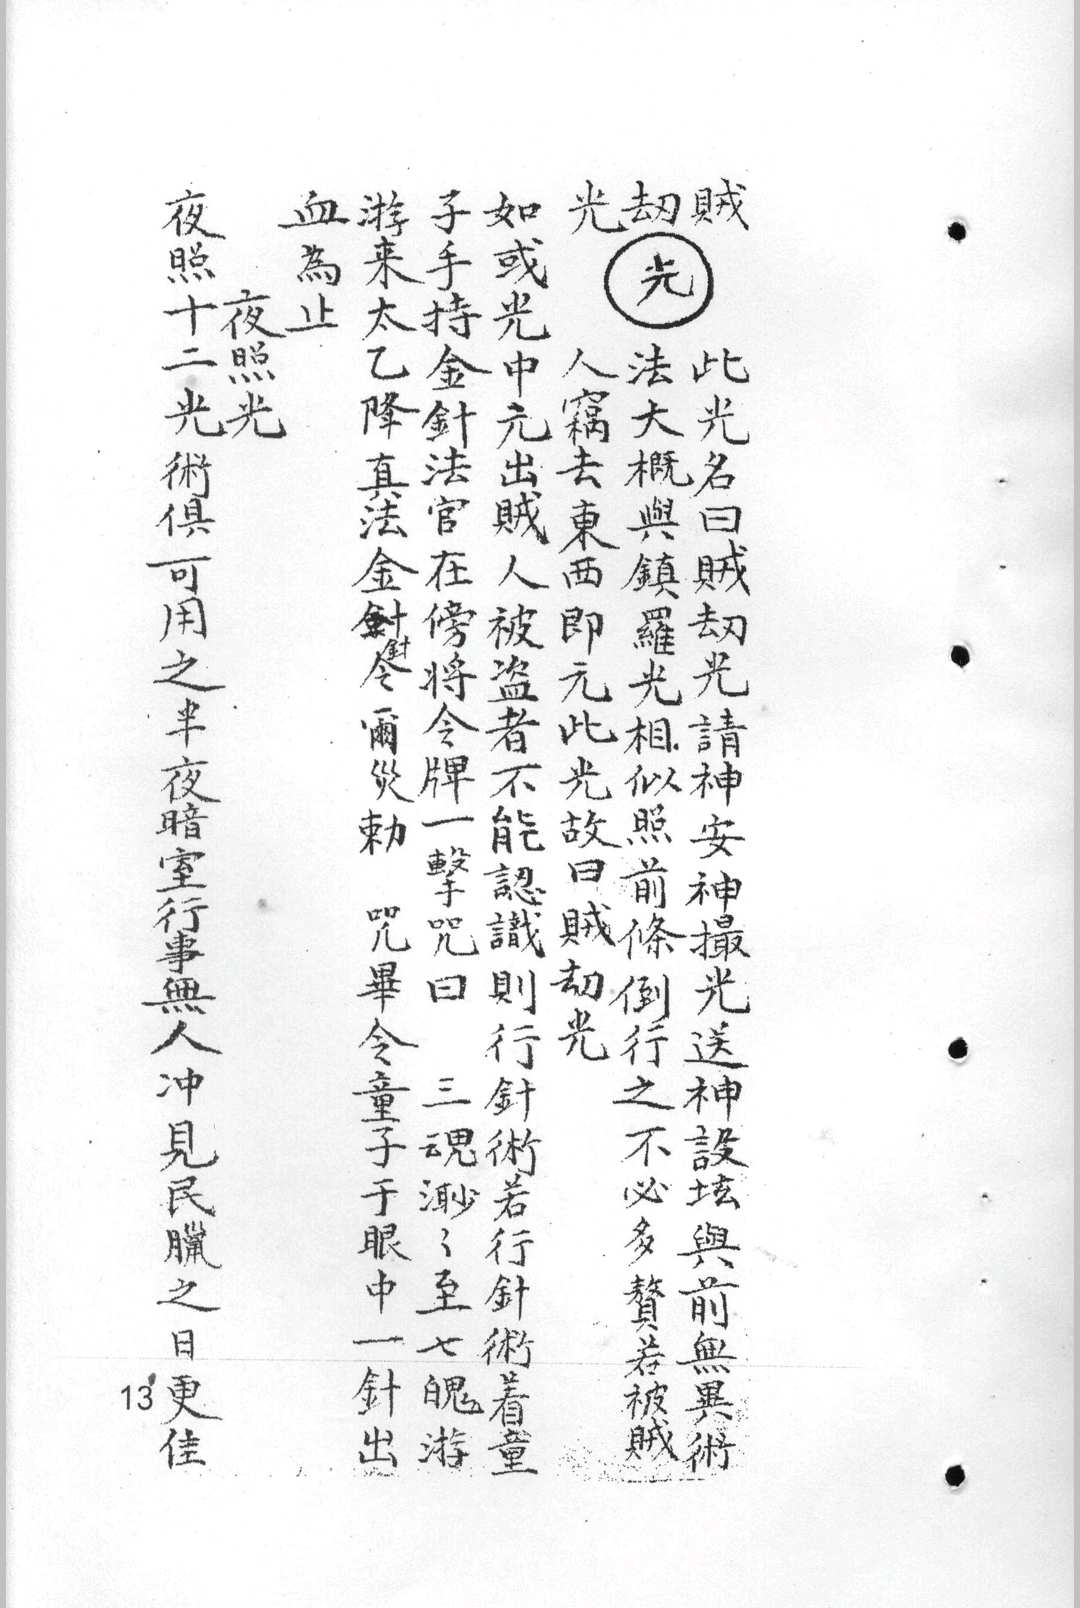 賊 此光名曰賊劫光請神安神撮光送神設坛與前無異術
劫光 法大概與鎮羅光相似照前條倒行之不必多贅若被賊
光 人竊去東西即元此光故曰賊劫光
如或光中元出賊人被盜者不能認識則行針術若行針術着童
子手持金針法官在傍將令牌一擊咒曰 三魂渺〻至七魄游
游来太乙降真法金針令爾災勅 咒畢令童子于眼中一針出
血為止
夜照光
夜照十二光術俱可用之半夜暗室行事無人冲見民臘之日更佳
13